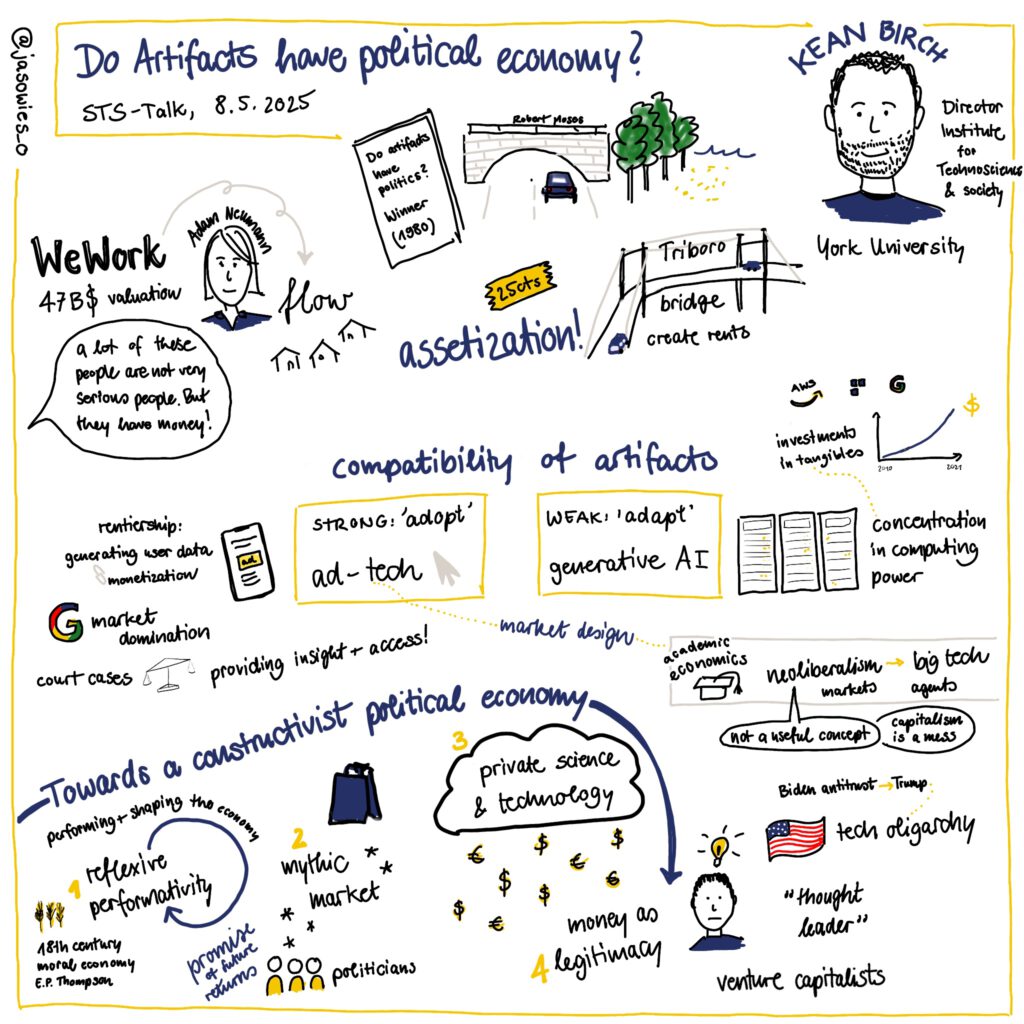 @jasowies_o
Do Artifacts have political economy?
STS-Talk, 8.5.2025
KEAN BIRCH
Director
Institute
for
Technoscience
& society
York University
Do artifacts
have
politics?
Winner
(1980)
Robert Moses
WeWork
47B$ valuation
Adam Neumann
flow
a lot of these
people are not very
serious people. But
they have money!
25cts
assetization!
Triboro
bridge
create rents
AWS
G
$
investments
in tangibles
2010
2021
compatibility of artifacts
STRONG: 'adopt'
ad-tech
WEAK: 'adapt'
generative AI
concentration
in computing
power
rentiership:
generating user data
monetization
ad
G market
domination
court cases
providing insight + access!
market design
academic
economics
neoliberalism → big tech
markets
agents
not a useful concept
capitalism
is a mess
Towards a constructivist political economy
performing + shaping the economy
1 reflexive
performativity
18th century
moral economy
E.P. Thompson
promise
of future
returns
2
mythic
market
politicians
3
private science
& technology
€ $ $ € € $ $ $ €
4 money as
legitimacy
Biden antitrust → Trump
tech oligarchy
"thought
leader"
venture capitalists